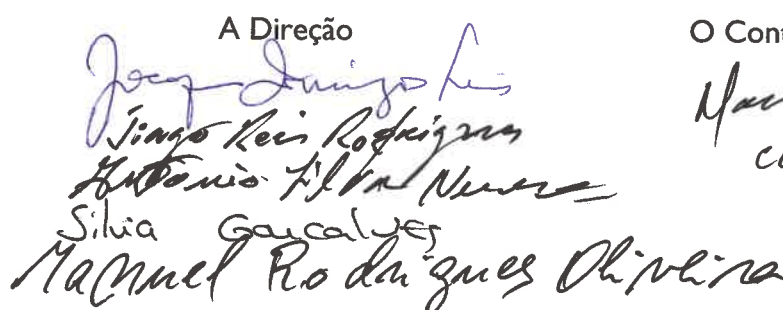 A Direção
O Cont
Domingo Reis
Tiago Reis Rodrigues
António Silva Nunes
Silvia Gonçalves
Manuel Rodrigues Oliveira